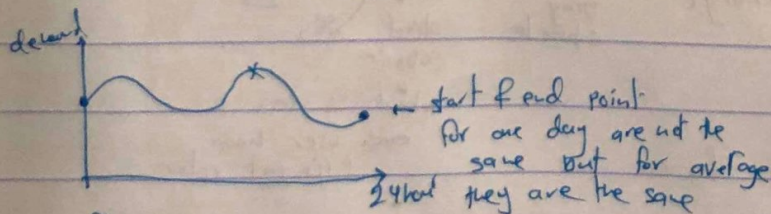 demand
start & end point
for one day are not the
same but for average
24hour they are the same